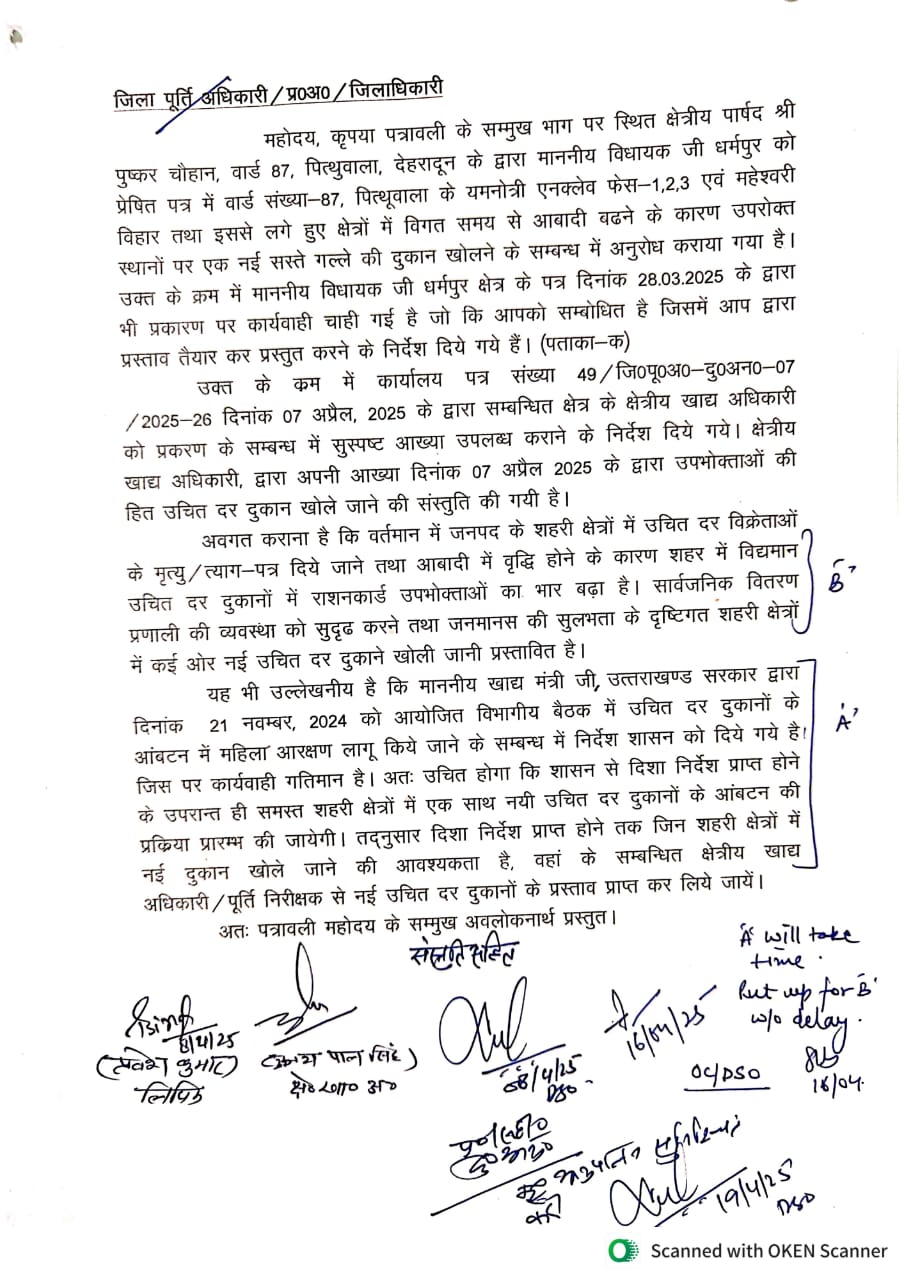 जिला पूर्ति अधिकारी/प्र0अ0/जिलाधिकारी
महोदय, कृपया पत्रावली के सम्मुख भाग पर स्थित क्षेत्रीय पार्षद श्री
पुष्कर चौहान, वार्ड 87, पित्थुवाला, देहरादून के द्वारा माननीय विधायक जी धर्मपुर को
प्रेषित पत्र में वार्ड संख्या–87, पित्थूवाला के यमनोत्री एनक्लेव फेस–1,2,3 एवं महेश्वरी
विहार तथा इससे लगे हुए क्षेत्रों में विगत समय से आबादी बढने के कारण उपरोक्त
स्थानों पर एक नई सस्ते गल्ले की दुकान खोलने के सम्बन्ध में अनुरोध कराया गया है।
उक्त के क्रम में माननीय विधायक जी धर्मपुर क्षेत्र के पत्र दिनांक 28.03.2025 के द्वारा
भी प्रकारण पर कार्यवाही चाही गई है जो कि आपको सम्बोधित है जिसमें आप द्वारा
प्रस्ताव तैयार कर प्रस्तुत करने के निर्देश दिये गये हैं। (पताका–क)
उक्त के क्रम में कार्यालय पत्र संख्या 49/जि0पू0अ0–दु0अन0–07
/2025–26 दिनांक 07 अप्रैल, 2025 के द्वारा सम्बन्धित क्षेत्र के क्षेत्रीय खाद्य अधिकारी
को प्रकरण के सम्बन्ध में सुस्पष्ट आख्या उपलब्ध कराने के निर्देश दिये गये। क्षेत्रीय
खाद्य अधिकारी, द्वारा अपनी आख्या दिनांक 07 अप्रैल 2025 के द्वारा उपभोक्ताओं की
हित उचित दर दुकान खोले जाने की संस्तुति की गयी है।
अवगत कराना है कि वर्तमान में जनपद के शहरी क्षेत्रों में उचित दर विक्रेताओं
के मृत्यु/त्याग–पत्र दिये जाने तथा आबादी में वृद्धि होने के कारण शहर में विद्यमान
उचित दर दुकानों में राशनकार्ड उपभोक्ताओं का भार बढ़ा है। सार्वजनिक वितरण
प्रणाली की व्यवस्था को सुदृढ करने तथा जनमानस की सुलभता के दृष्टिगत शहरी क्षेत्रों
में कई ओर नई उचित दर दुकाने खोली जानी प्रस्तावित है।
'B'
यह भी उल्लेखनीय है कि माननीय खाद्य मंत्री जी, उत्तराखण्ड सरकार द्वारा
दिनांक 21 नवम्बर, 2024 को आयोजित विभागीय बैठक में उचित दर दुकानों के
आंबटन में महिला आरक्षण लागू किये जाने के सम्बन्ध में निर्देश शासन को दिये गये है।
जिस पर कार्यवाही गतिमान है। अतः उचित होगा कि शासन से दिशा निर्देश प्राप्त होने
के उपरान्त ही समस्त शहरी क्षेत्रों में एक साथ नयी उचित दर दुकानों के आंबटन की
प्रक्रिया प्रारम्भ की जायेगी। तद्नुसार दिशा निर्देश प्राप्त होने तक जिन शहरी क्षेत्रों में
नई दुकान खोले जाने की आवश्यकता है, वहां के सम्बन्धित क्षेत्रीय खाद्य
अधिकारी/पूर्ति निरीक्षक से नई उचित दर दुकानों के प्रस्ताव प्राप्त कर लिये जायें।
'A'
अतः पत्रावली महोदय के सम्मुख अवलोकनार्थ प्रस्तुत।
संस्तुति सहित
'A' will take
time.
Put up for 'B'
w/o delay.
16/04
8/4/25
लिपिक
पाल सिंह)
क्षे0खा0अ0
08/4/25
DSO
16/04/25
OC/DSO
19/4/25
DSO
Scanned with OKEN Scanner